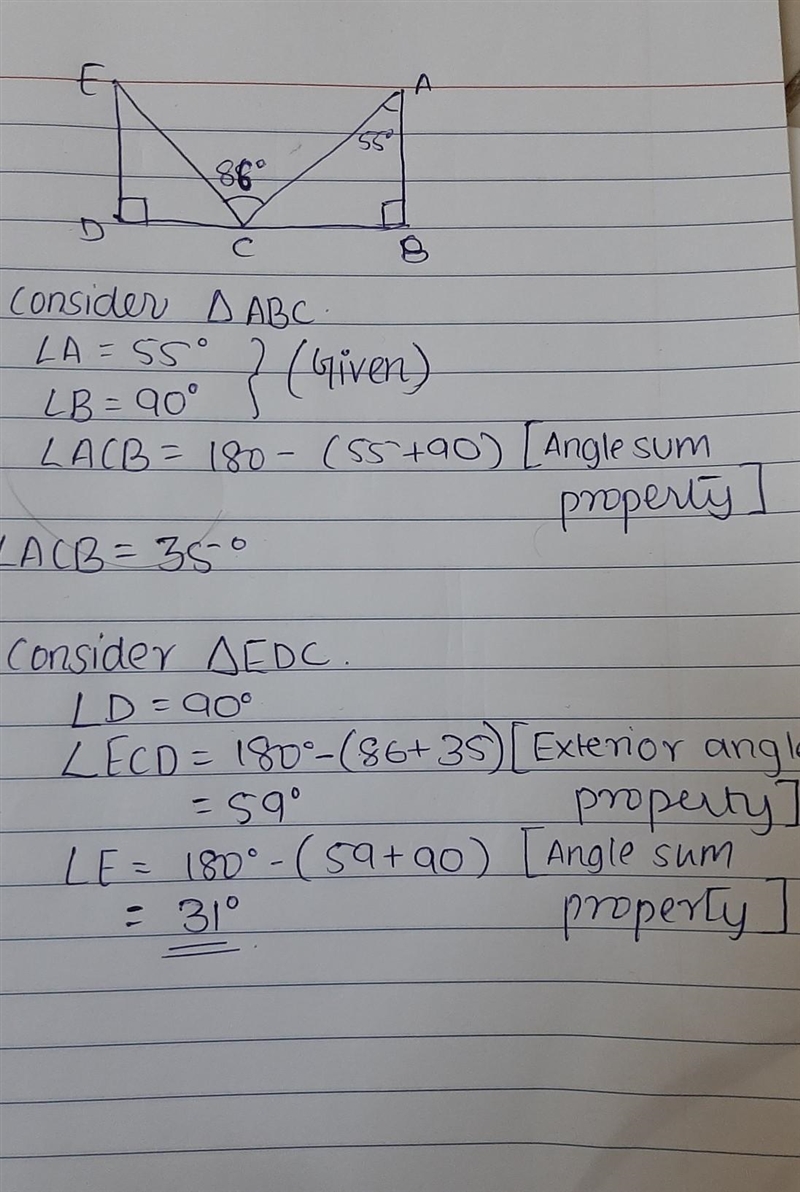 E A
55°
86°
D C B
Consider △ ABC.
∠A = 55° } (Given)
∠B = 90°
∠ACB = 180 - (55+90) [Angle sum
property]
∠ACB = 35°
Consider △EDC.
∠D = 90°
∠ECD = 180° - (86+35) [Exterior angle
= 59° property]
∠E = 180° - (59+90) [Angle sum
= 31° property]